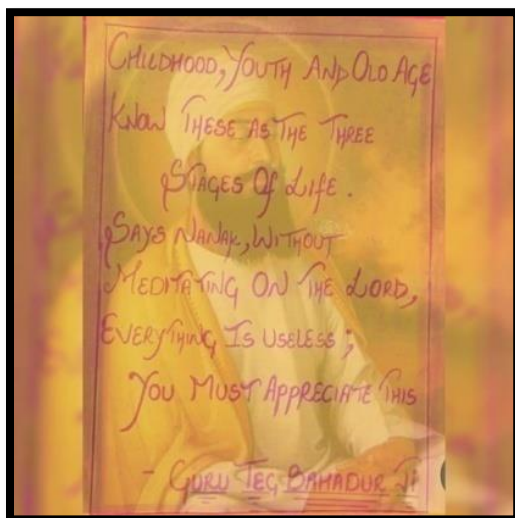 CHILDHOOD, YOUTH AND OLD AGE
KNOW THESE AS THE THREE
STAGES OF LIFE.
SAYS NANAK, WITHOUT
MEDITATING ON THE LORD,
EVERYTHING IS USELESS;
YOU MUST APPRECIATE THIS
- GURU TEG BAHADUR JI